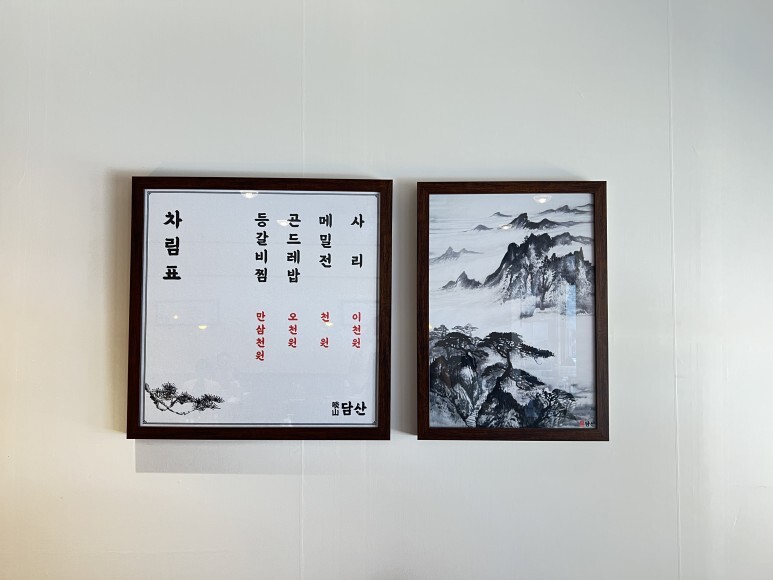 차림표
등갈비찜 만삼천원
곤드레밥 오천원
메밀전 천원
사리 이천원
담산
담산